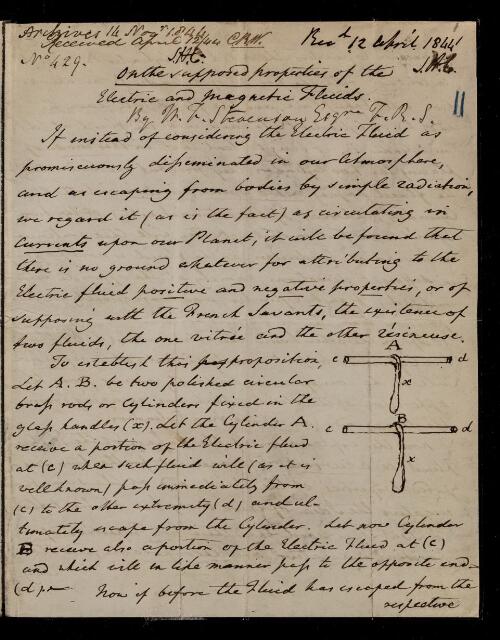 Archives 14 Novr 1844
Received April 12/44 C.R.W.
Recd 12 April 1844
No 429.
S.H.C.
S.H.C.
11
On the supposed properties of the
Electric and magnetic Fluids.
By W. F. Stevenson Esqre F.R.S.
If instead of considering the Electric Fluid as
promiscuously disseminated in our Atmosphere,
and as escaping from bodies by simple radiation,
we regard it (as is the fact) as circulating in
currents upon our Planet, it will be found that
there is no ground whatever for attributing to the
Electric fluid positive and negative properties, or of
supposing with the French Savants, the existence of
two fluids, the one vitrée and the other résineuse.
To establish this proposition,
Let A. B. be two polished circular
brass rods or Cylinders fixed in the
glass handles (x). Let the Cylinder A.
receive a portion of the Electric fluid
at (c) when such fluid will (as it is
well known) pass immediately from
(c) to the other extremity (d) and ul-
timately escape from the Cylinder. Let now Cylinder
B receive also a portion of the Electric Fluid at (c)
and which will in like manner pass to the opposite end
(d)
Now if before the Fluid has escaped from the
respective
A
c
d
x
B
c
d
x